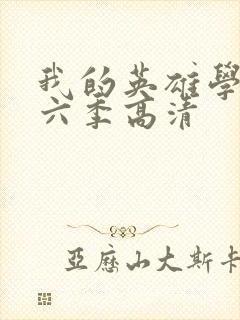 我的英雄學
六季高清
亞歷山大斯卡